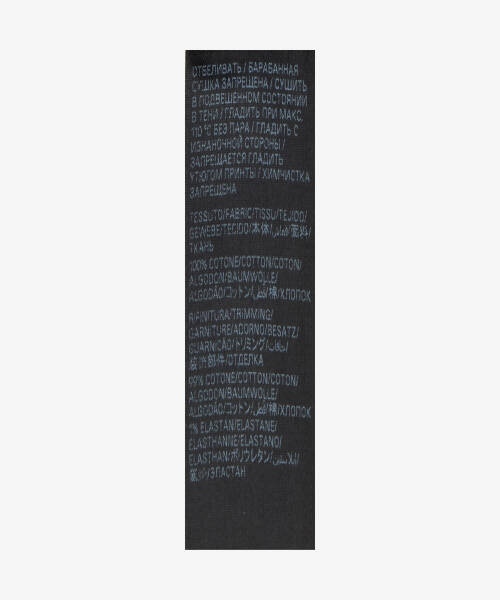 ОТБЕЛИВАТЬ / БАРАБАННАЯ
СУШКА ЗАПРЕЩЕНА / СУШИТЬ
В ПОДВЕШЕННОМ СОСТОЯНИИ
В ТЕНИ / ГЛАДИТЬ ПРИ МАКС.
110 °C БЕЗ ПАРА / ГЛАДИТЬ С
ИЗНАНОЧНОЙ СТОРОНЫ /
ЗАПРЕЩАЕТСЯ ГЛАДИТЬ
УТЮГОМ ПРИНТЫ / ХИМЧИСТКА
ЗАПРЕЩЕНА
TESSUTO/FABRIC/TISSU/TEJIDO/
GEWEBE/TECIDO/本体/قماش/面料/
ТКАНЬ
100% COTONE/COTTON/COTON/
ALGODON/BAUMWOLLE/
ALGODÃO/コットン/قطن/棉/ХЛОПОК
RIFINITURA/TRIMMING/
GARNITURE/ADORNO/BESATZ/
GUARNIÇÃO/トリミング/
ОТДЕЛКА
99% COTONE/COTTON/COTON/
ALGODON/BAUMWOLLE/
ALGODÃO/コットン/قطن/棉/ХЛОПОК
1% ELASTAN/ELASTANE/
ELASTHANNE/ELASTANO/
ELASTHAN/ポリウレタン/
ЭЛАСТАН